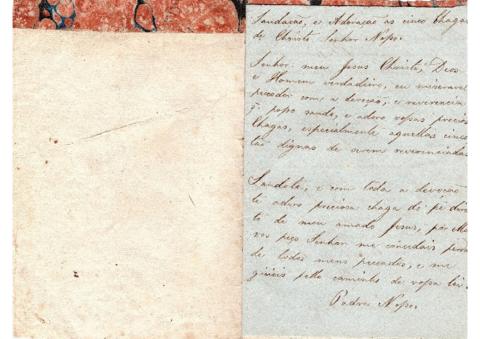 Saudacão, e Adoracão as cinco Chagas
de Christo Senhor Nosso.
Senhor meu Jesus Christo, Deos
e Homem verdadeiro, eu miseravel
peccador com a devoção, e reverencia
q̃ posso saudo, e adoro vossas preciosas
Chagas, especialmente aquellas cinco
tão dignas de serem reverenciadas
Saudote, e com toda a devocão
te adoro preciosa chaga do pé direi
to de meu amado Jesus, por
vos peço Senhor me concedais perdão
de todos meus peccados, e me
guieis pello caminho de vossa lei.
Padre Nosso.